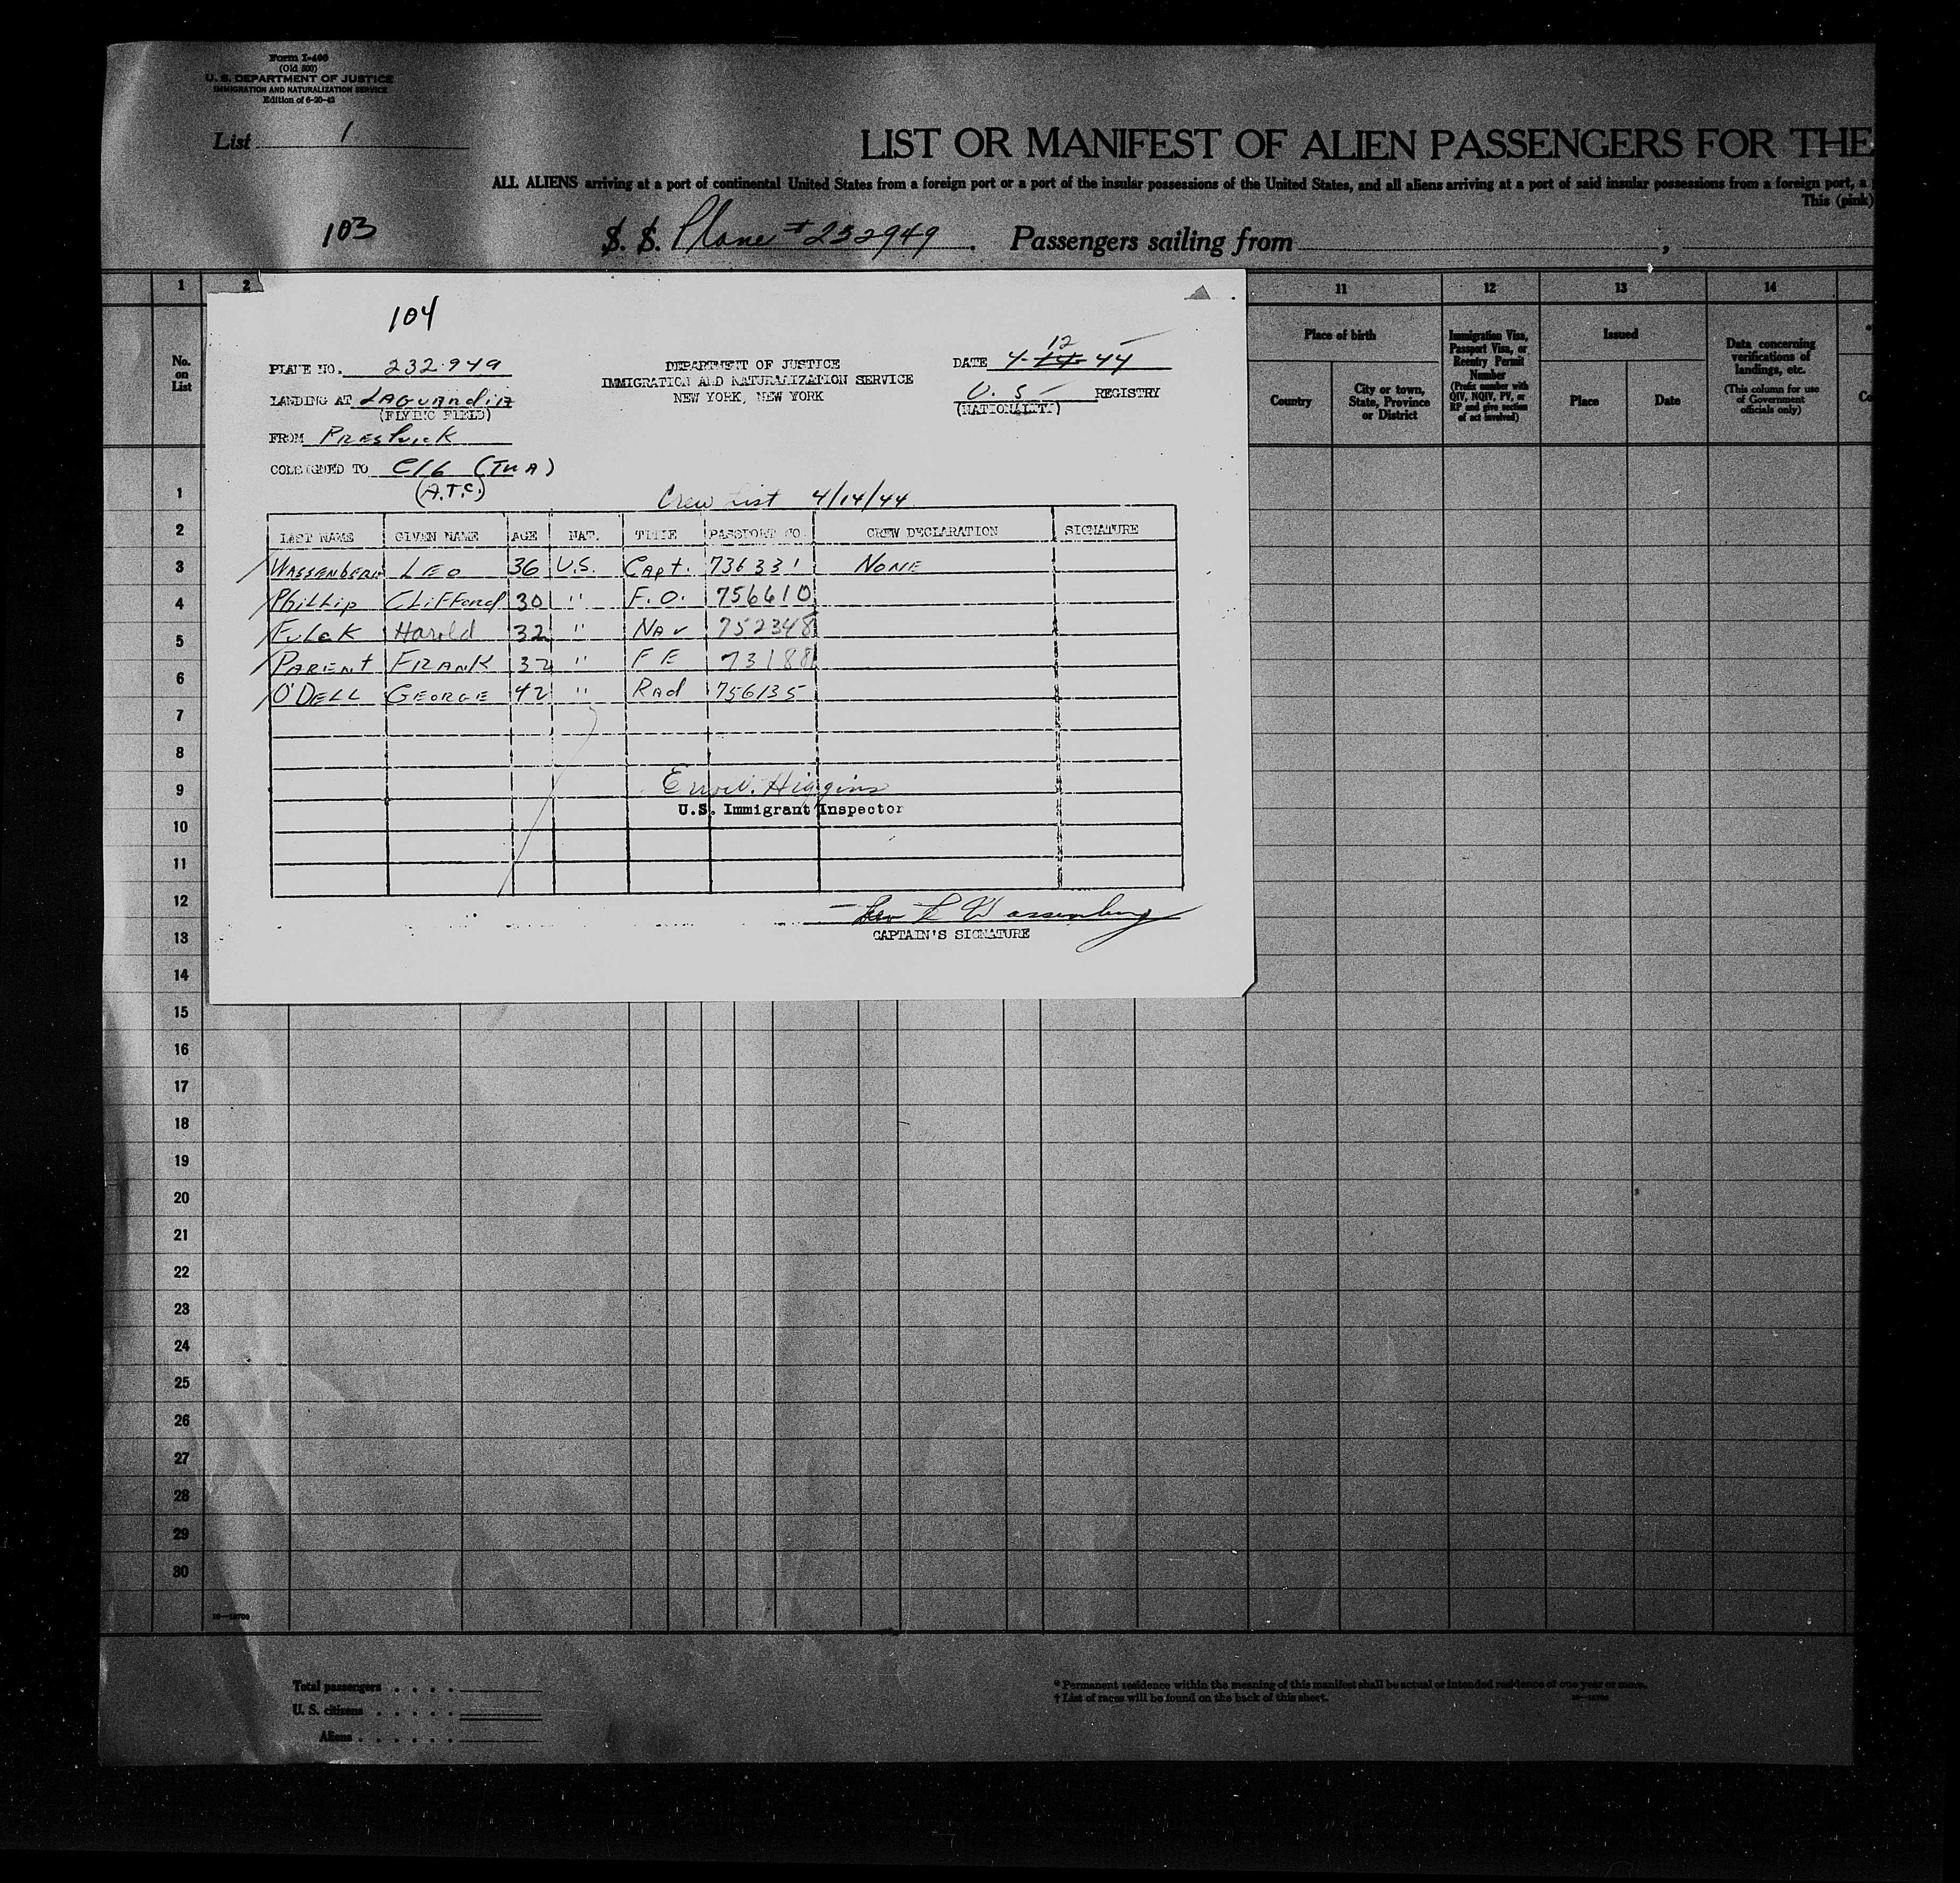 Form I-400
(Old 500)
U. S. DEPARTMENT OF JUSTICE
IMMIGRATION AND NATURALIZATION SERVICE
Edition of 6-20-43
List 1
LIST OR MANIFEST OF ALIEN PASSENGERS FOR THE
ALL ALIENS arriving at a port of continental United States from a foreign port or a port of the insular possessions of the United States, and all aliens arriving at a port of said insular possessions from a foreign port, a
This (pink)
103
S. S. Plane # 232949 . Passengers sailing from ,
1 2 11 12 13 14
No. on List
Place of birth
Country
City or town, State, Province or District
Immigration Visa, Passport Visa, or Reentry Permit Number
(Prefix number with QIV, NQIV, PV, or RP and give section of act involved)
Issued
Place
Date
Data concerning verifications of landings, etc.
(This column for use of Government officials only)
Co
104
PLANE NO. 232.949
DEPARTMENT OF JUSTICE
IMMIGRATION AND NATURALIZATION SERVICE
NEW YORK, NEW YORK
DATE 4-14-44
12
LANDING AT LAGUARDIA
(FLYING FIELD)
U.S REGISTRY
(NATIONALITY)
FROM PRESTWICK
CONSIGNED TO C16 (TWA)
(A.T.C.)
Crew List 4/14/44
LAST NAME GIVEN NAME AGE NAT. TITLE PASSPORT NO. CREW DECLARATION SIGNATURE
WASSENBERG LEO 36 U.S. Capt. 736331 NONE
Phillip Clifford 30 " F.O. 756610
Fulck Harold 32 " NAV 752348
PARENT FRANK 32 " FE 73188
O'DELL GEORGE 42 " Rad 756135
Higgins
U.S. Immigrant Inspector
Leo L Wassenberg
CAPTAIN'S SIGNATURE
1
2
3
4
5
6
7
8
9
10
11
12
13
14
15
16
17
18
19
20
21
22
23
24
25
26
27
28
29
30
Total passengers . . . .
U. S. citizens . . . . .
Aliens . . . . . .
* Permanent residence within the meaning of this manifest shall be actual or intended residence of one year or more.
† List of races will be found on the back of this sheet.